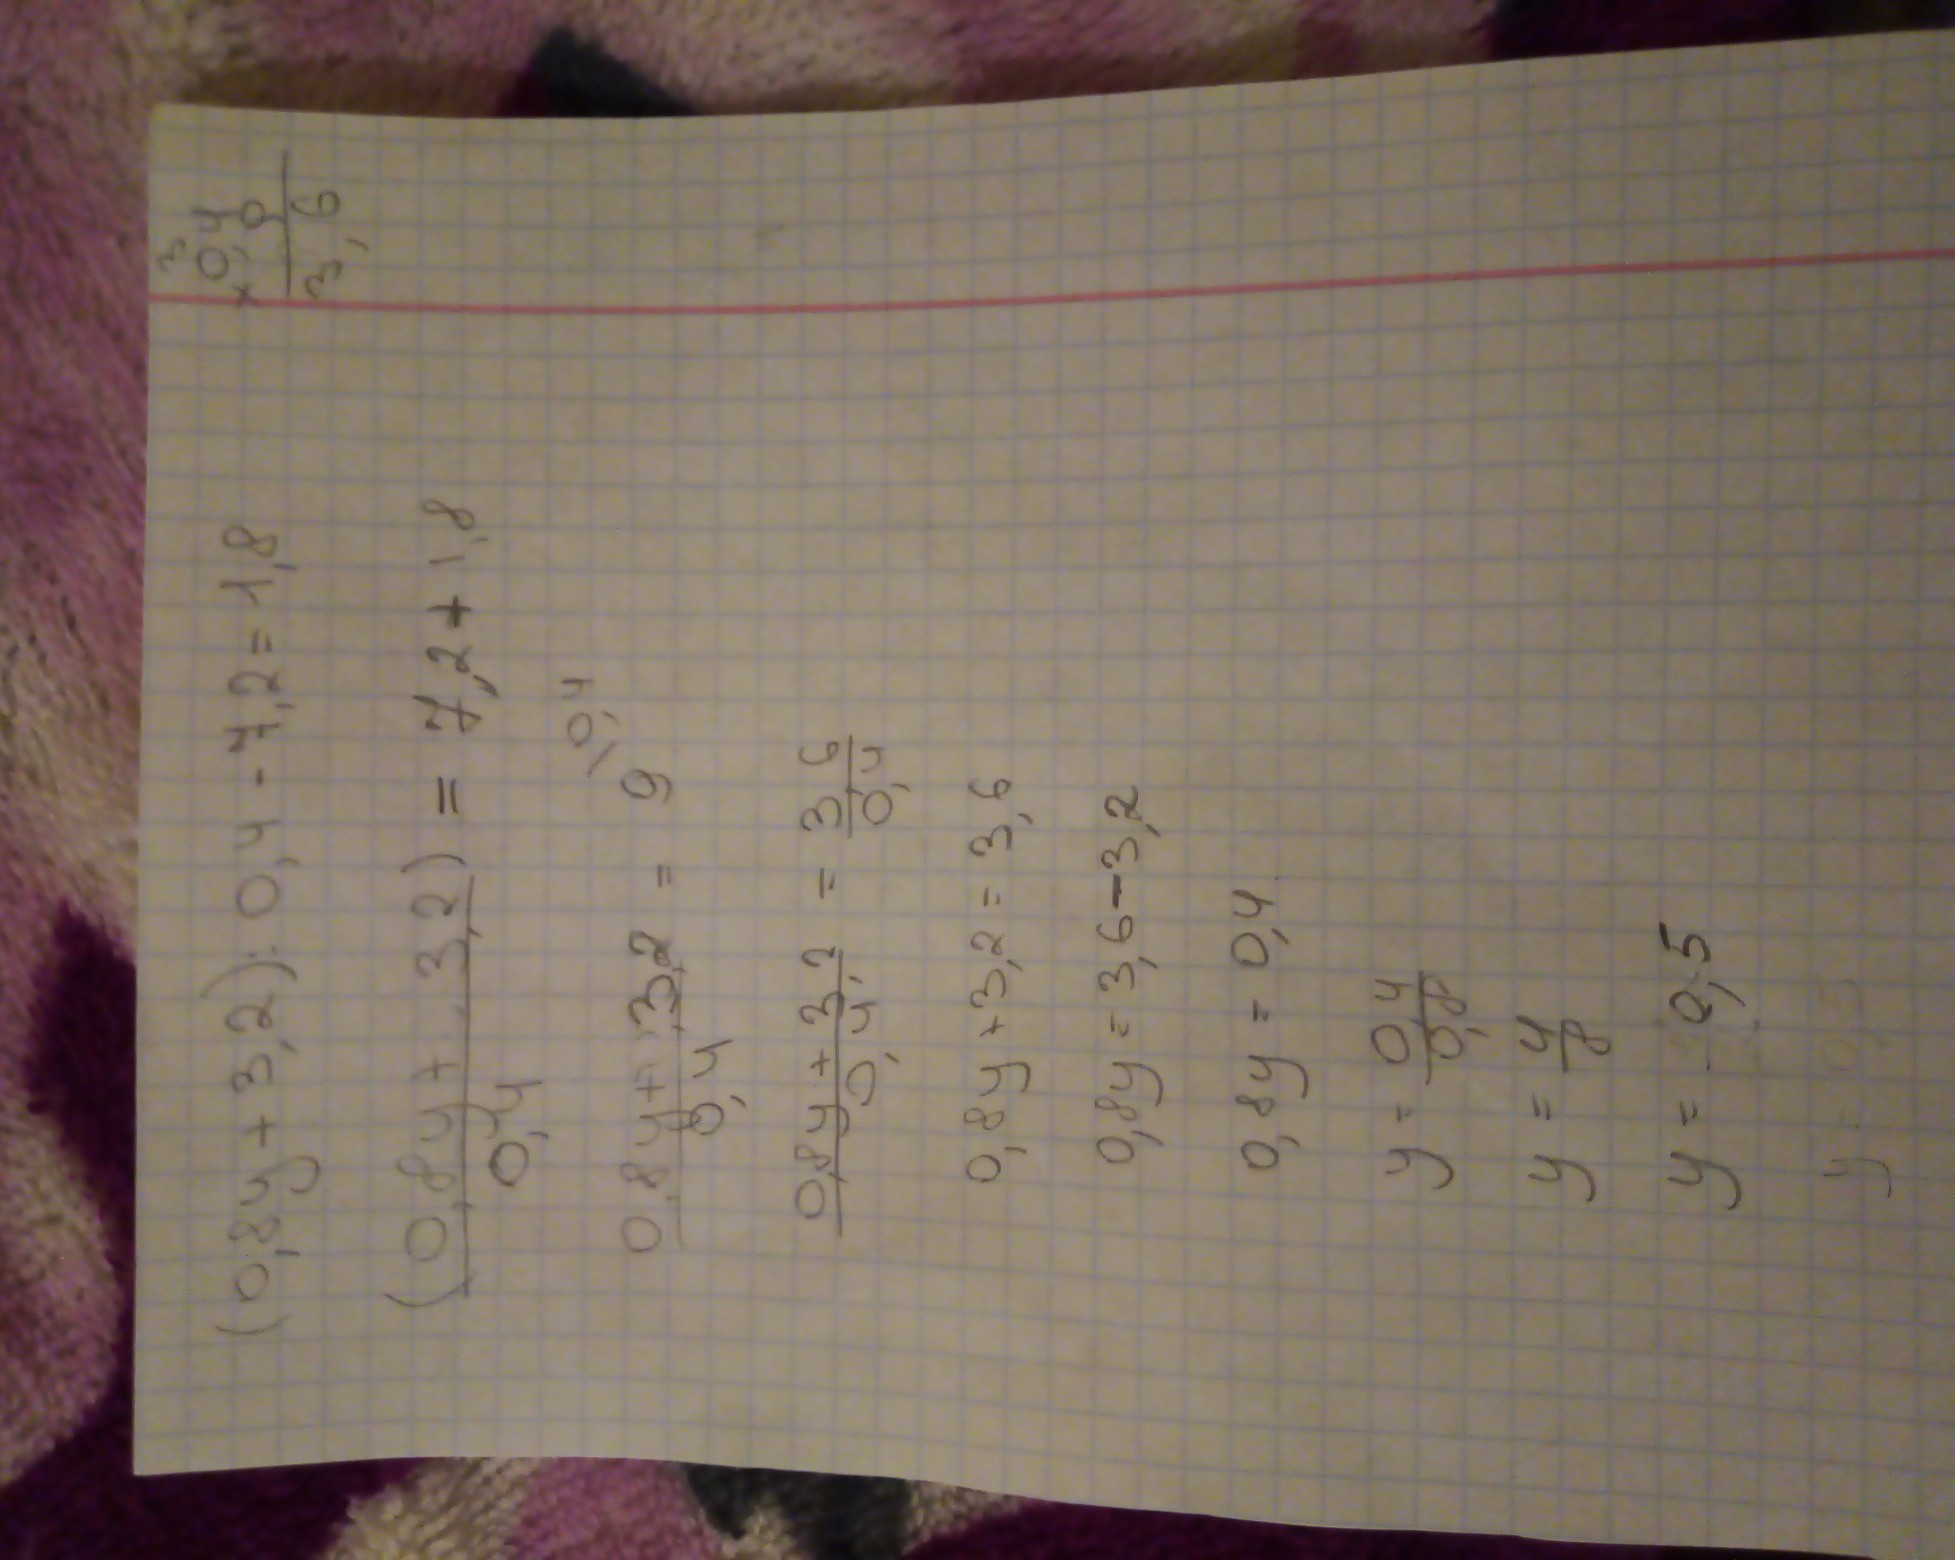 3
× 0,4
9
3,6
(0,8y + 3,2) : 0,4 - 7,2 = 1,8
(0,8y + 3,2) = 7,2 + 1,8
0,4
\0,4
0,8y + 3,2 = 9
0,4
0,8y + 3,2 = 3,6
0,4 0,4
0,8y + 3,2 = 3,6
0,8y = 3,6 - 3,2
0,8y = 0,4
y = 0,4
0,8
y = 4
8
y = 0,5